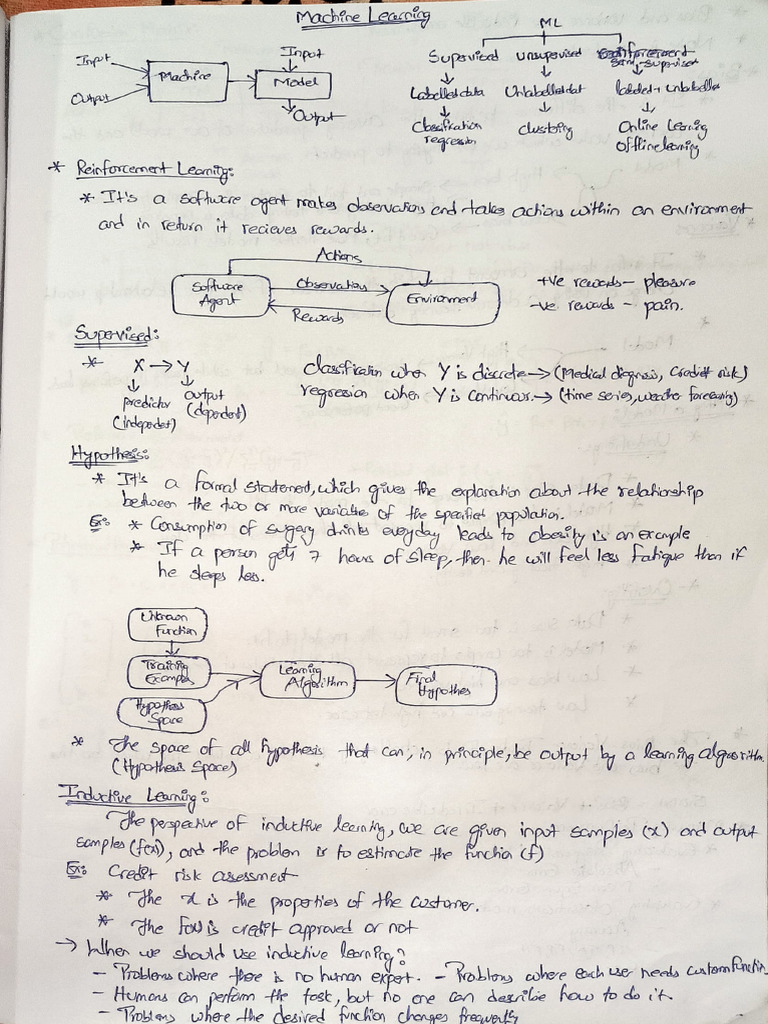 Machine Learning
Input
Output
Machine
Input
Model
Output
ML
Supervised unsupervised
Semi-supervised
Labelled data Unlabelled dat labeled + unlabelled
Classification
regression
clustering
Online learning
offline learning
* Reinforcement Learning:
* It's a software agent makes observations and takes actions within an environment
and in return it recieves rewards.
Actions
Software
Agent
Observations
Rewards
Environment
+ve rewards - pleasure
-ve rewards - pain.
Supervised:
* X → Y
predictor
(independent)
output
(dependent)
Classification when Y is discrete → (Medical diagnosis, Credit risk)
regression when Y is continuous. → (time series, weather forecasting)
Hypothesis:
* It's a formal statement, which gives the explanation about the relationship
between the two or more variables of the specified population.
Ex: * Consumption of sugary drinks everyday leads to obesity is an example
* If a person gets 7 hours of sleep, then he will feel less fatigue than if
he sleeps less.
Unknown
Function
Training
Examples
Hypothesis
Space
Learning
Algorithm
Final
Hypothes
* The space of all hypothesis that can, in principle, be output by a learning algorithm.
(Hypothesis Space)
Inductive Learning:
The perspective of inductive learning, we are given input samples (x) and output
samples (f(x)), and the problem is to estimate the function (f)
Ex: Credit risk assessment
* The x is the properties of the customer.
* The f(x) is credit approved or not
→ When we should use inductive learning?
- Problems where there is no human expert. - Problems where each user needs custom function
- Humans can perform the task, but no one can describe how to do it.
- Problems where the desired function changes frequently